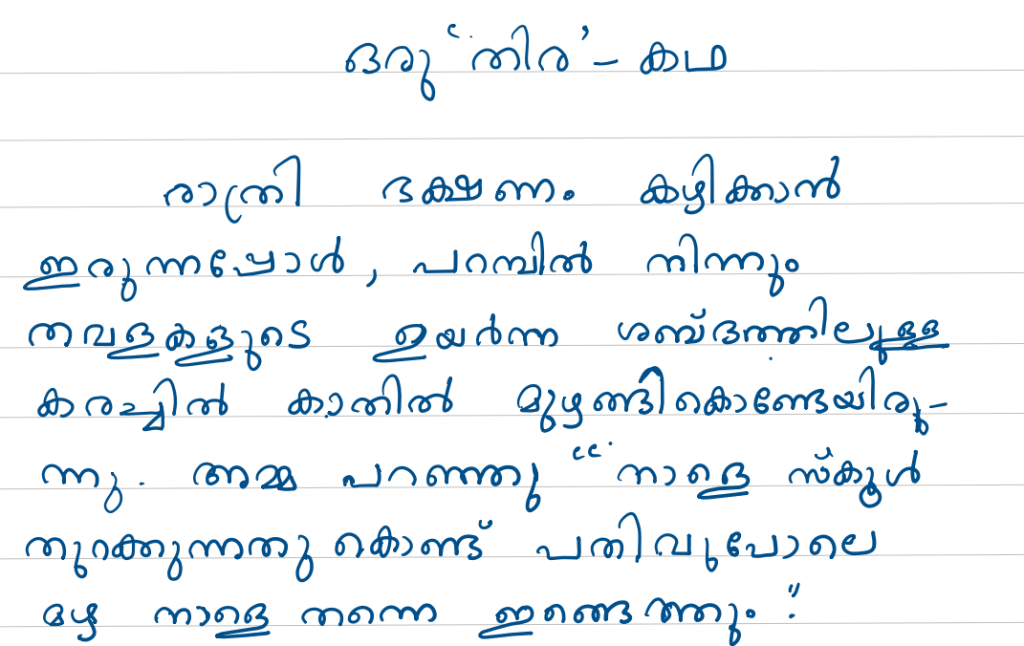 ഒരു ‘തിര’ – കഥ
രാത്രി ഭക്ഷണം കഴിക്കാൻ
ഇരുന്നപ്പോൾ, പറമ്പിൽ നിന്നും
തവളകളുടെ ഉയർന്ന ശബ്ദത്തിലുള്ള
കരച്ചിൽ കാതിൽ മുഴങ്ങികൊണ്ടേയിരു-
ന്നു. അമ്മ പറഞ്ഞു “നാളെ സ്കൂൾ
തുറക്കുന്നതു കൊണ്ട് പതിവുപോലെ
മഴ നാളെ തന്നെ ഇങ്ങെത്തും."